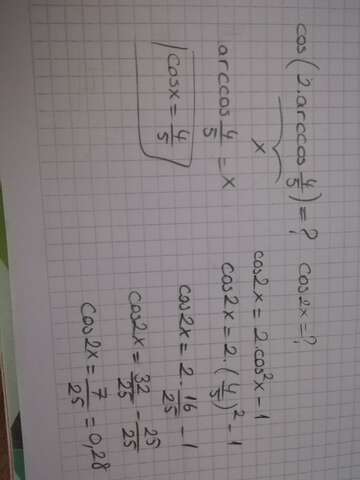 cos(2.arccos 4/5) = ?
x
arccos 4/5 = x
cosx = 4/5
cos2x = ?
cos2x = 2.cos²x - 1
cos2x = 2.(4/5)² - 1
cos2x = 2.16/25 - 1
cos2x = 32/25 - 25/25
cos2x = 7/25 = 0,28